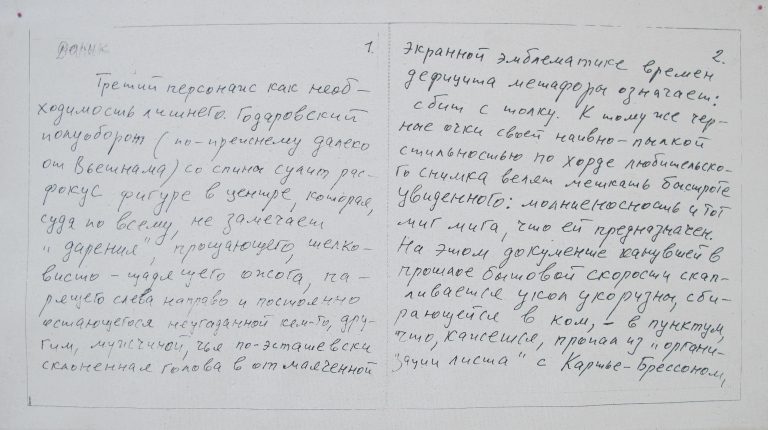 1.
Третий персонаж как необ-
ходимость лишнего. Годаровский
полуоборот (по-прежнему далеко
от Вьетнама) со спины сулит рас-
фокус фигуре в центре, которая,
судя по всему, не замечает
"дарения", прощающего, шелко-
висто-щадящего ожога, па-
рящего слева направо и постоянно
остающегося неугаданной кем-то, дру-
гим, мужчиной, чья по-эсташевски
склоненная голова в отмаянной
2.
экранной эмблематике времен
дефицита метафоры означает:
сбит с толку. К тому же чер-
ные очки своей наивно-пылкой
стильностью по хорде любительско-
го снимка велят мешкать быстроте
увиденного: молниеносность и тот
миг мига, что ей предназначен.
На этом документе канувшей в
прошлое бытовой скорости скап-
ливается укол укоризны, сби-
рающейся в ком, – в пунктум,
что, кажется, пропал из "органи-
зации листа" с Картье-Брессоном,